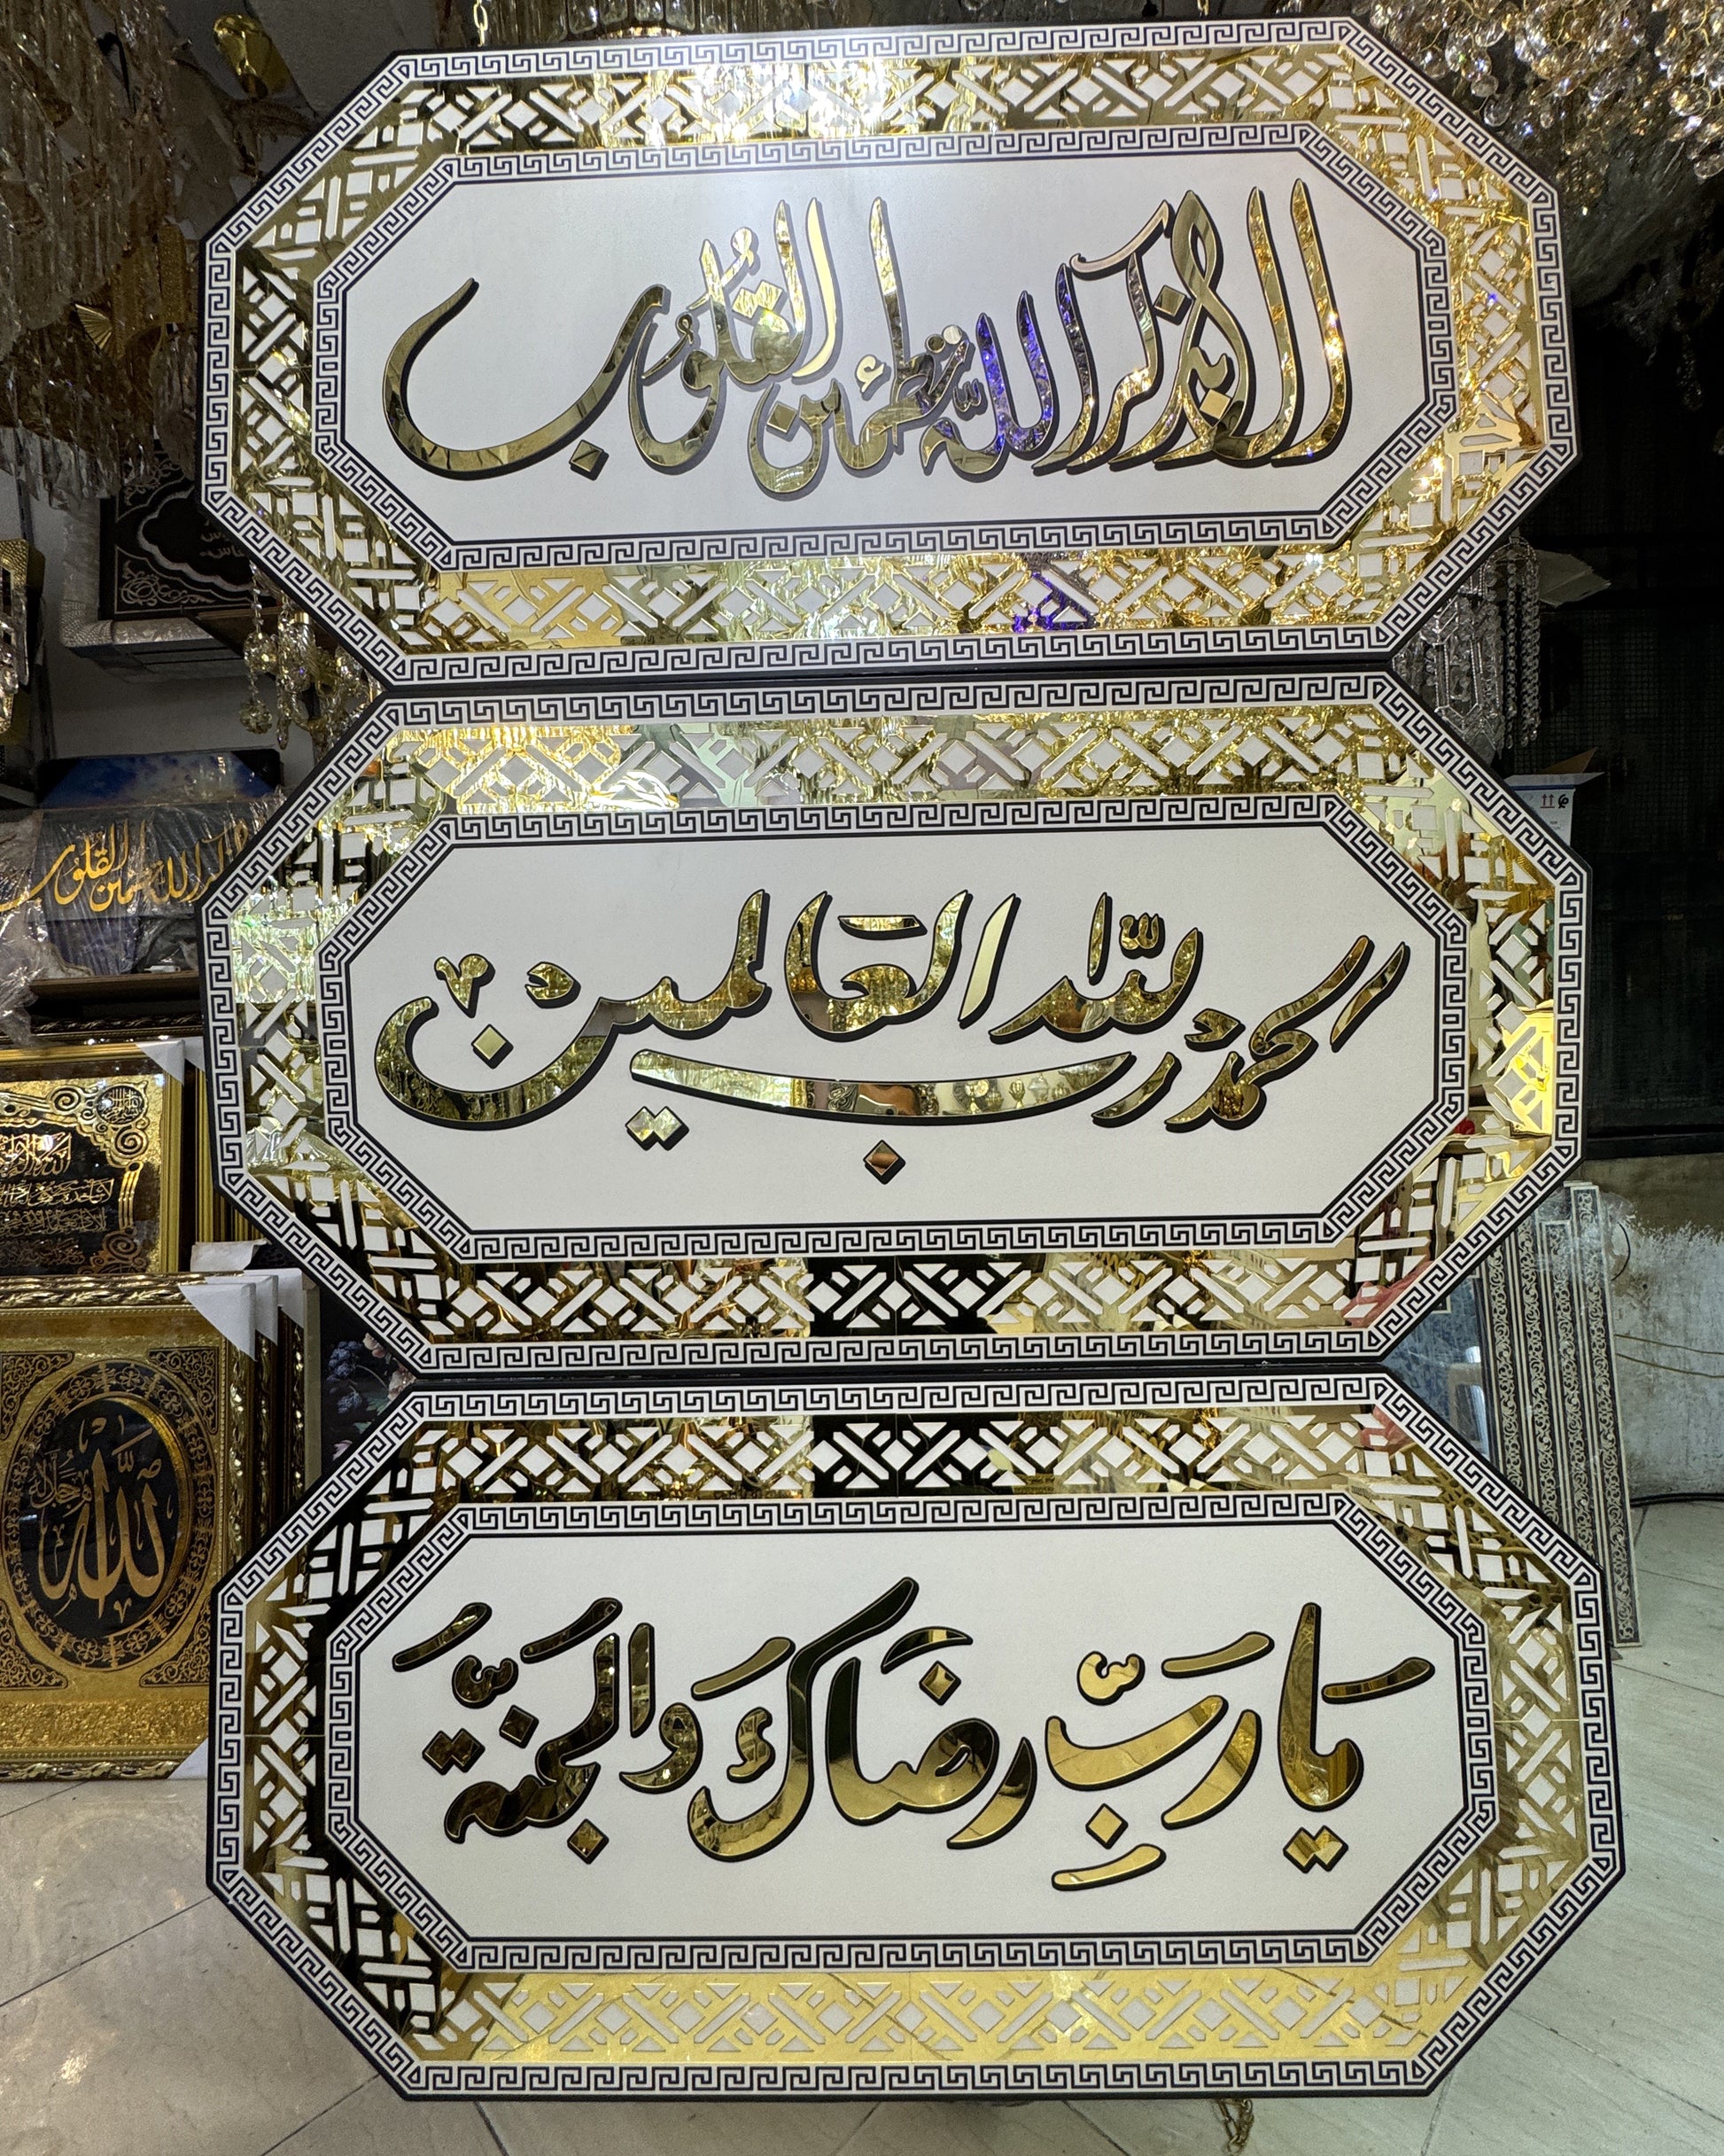 ألا بذكر الله تطمئن القلوب
الحمد لله رب العالمين
يَا رَبِّ رِضَاكَ وَالجَنَّةَ
الله
جل جلاله
الله تطمئن القلوب